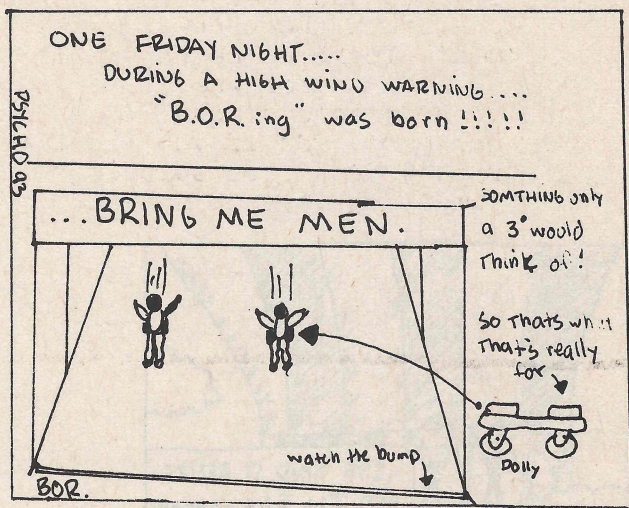 ONE FRIDAY NIGHT.....
DURING A HIGH WIND WARNING....
"B.O.R. ing" was born !!!!!
PSYCHO 93
...BRING ME MEN.
SOMTHING only
a 3° would
Think of!
So Thats
That's really
for
watch the bump
Dolly
BOR.